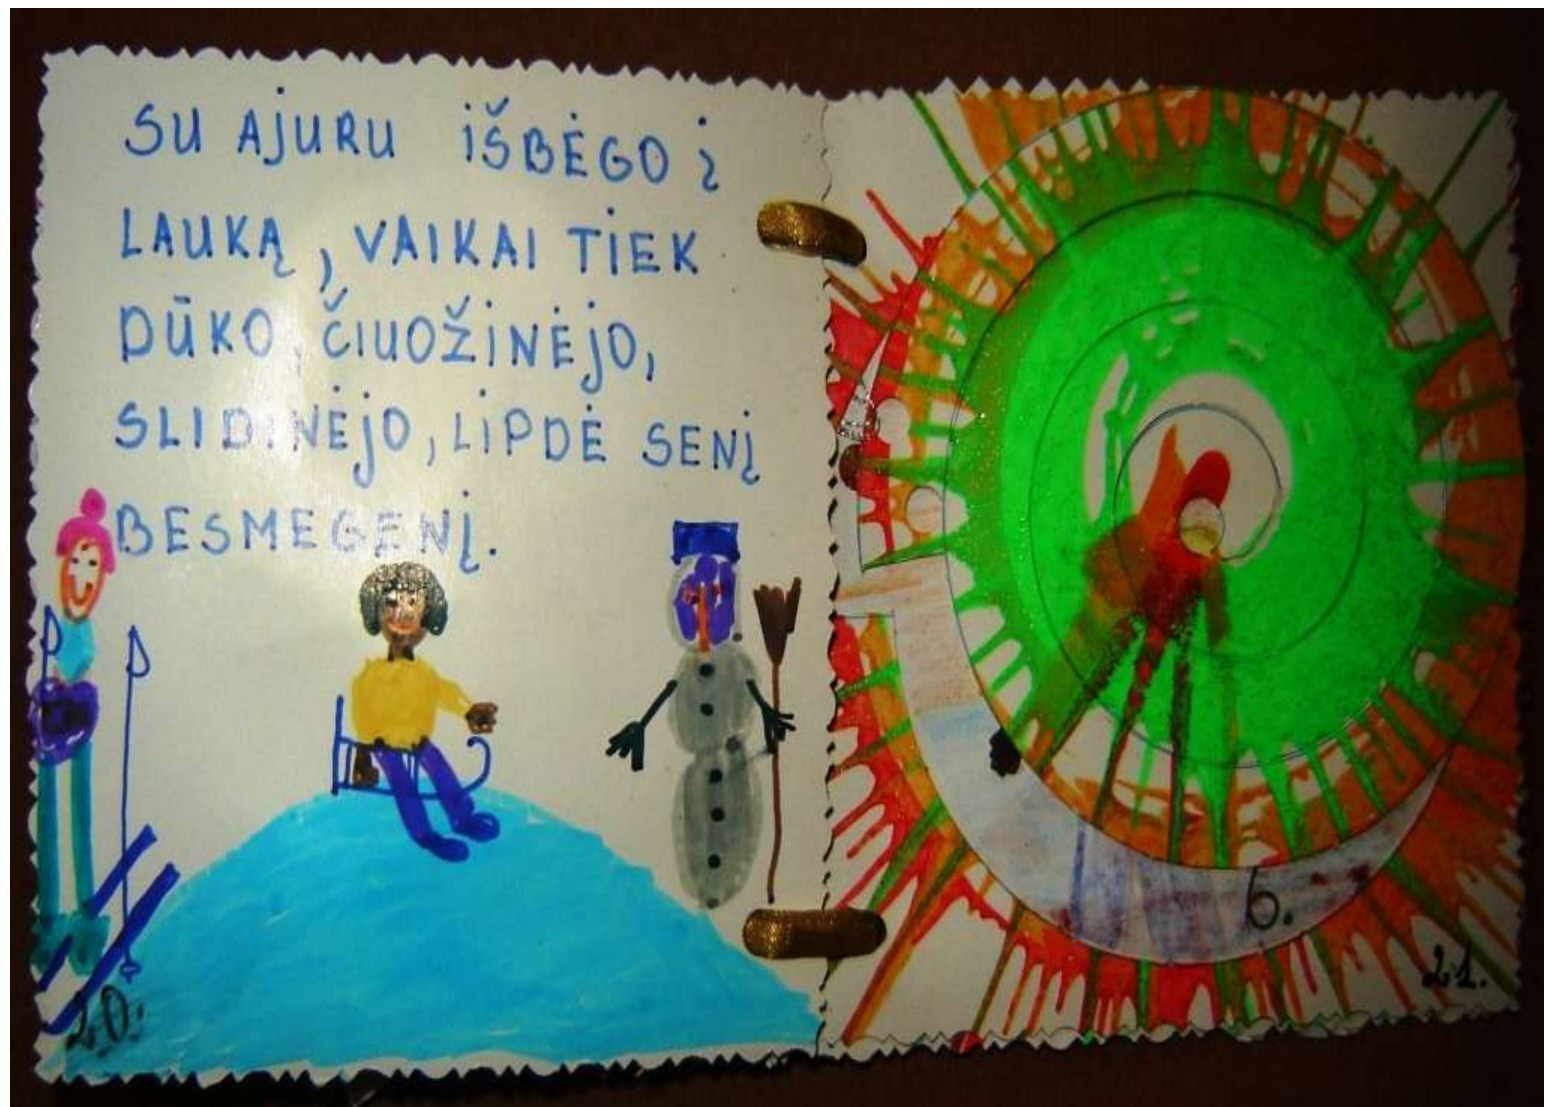 SU AJURU IŠBĖGO Į
LAUKĄ, VAIKAI TIEK
DŪKO, ČIUOŽINĖJO,
SLIDINĖJO, LIPDĖ SENĮ
BESMEGENĮ.
20.
6.
21.